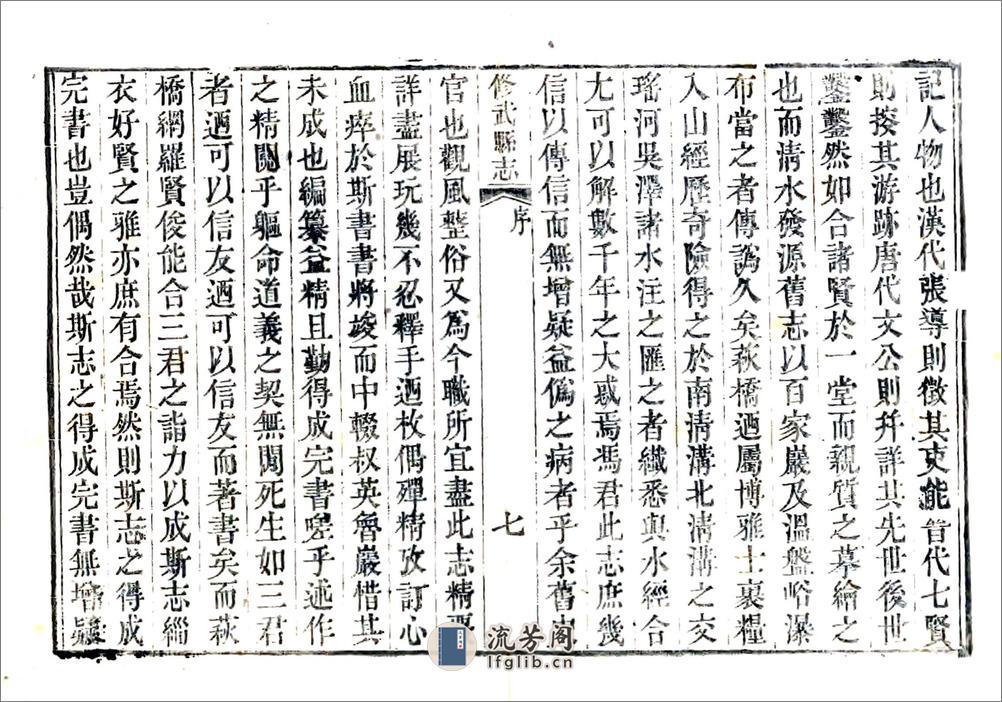 記人物也漢代張導則徵其吏能晉代七賢
則按其游跡唐代文公則幷詳其先世後世
鑿鑿然如合諸賢於一堂而親質之摹繪之
也而清水發源舊志以百家巖及溫盤峪瀑
布當之者傳譌久矣萩橋迺屬博雅士裹糧
入山經歷奇險得之於南清溝北清溝之交
瑤河吳澤諸水汪之匯之者纖悉與水經合
尤可以解數千年之大惑焉馮君此志庶幾
信以傳信而無增疑益僞之病者乎余舊史
修武縣志 序 七
官也觀風整俗又爲今職所宜盡此志精覈
詳盡展玩幾不忍釋手迺枚偶殫精攷訂心
血瘁於斯書書將竣而中輟叔英魯巖惜其
未成也編纂益精且勤得成完書嗟乎述作
之精關乎軀命道義之契無閒死生如三君
者迺可以信友迺可以信友而著書矣而萩
橋網羅賢俊能合三君之詣力以成斯志緇
衣好賢之雅亦庶有合焉然則斯志之得成
完書也豈偶然哉斯志之得成完書無增疑
流芳阁
lfglib.cn